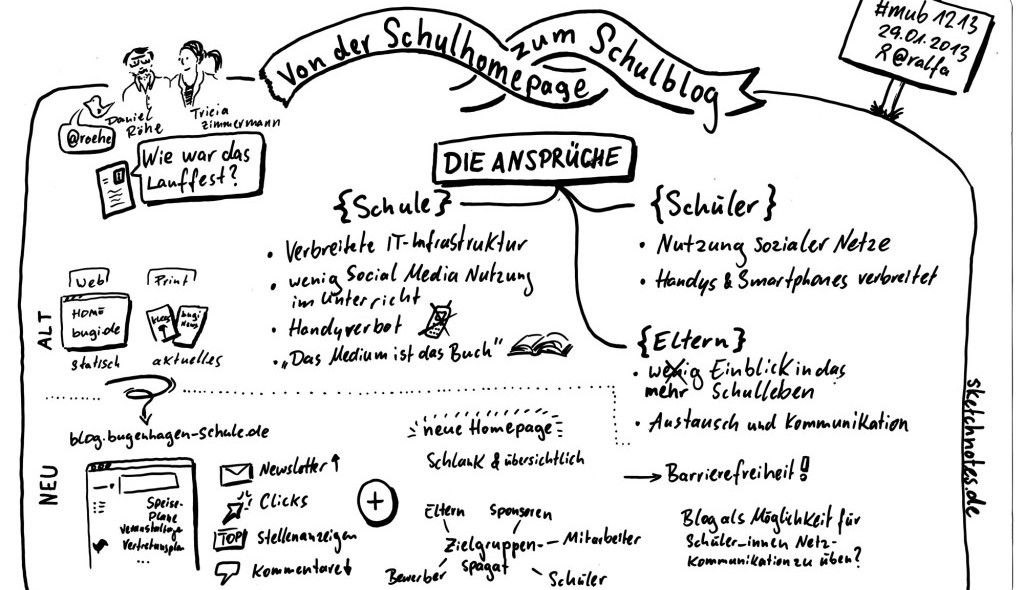 Von der Schulhomepage zum Schulblog
#mub1213
29.01.2013
@ralfa
Daniel Röhe
Tricia Zimmermann
@roehe
Wie war das
Lauffest?
DIE ANSPRÜCHE
{Schule}
• Verbreitete IT-Infrastruktur
• wenig Social Media Nutzung
im Unterricht
• Handyverbot
• „Das Medium ist das Buch"
{Schüler}
• Nutzung sozialer Netze
• Handys & Smartphones verbreitet
{Eltern}
• wenig Einblick in das
mehr Schulleben
• Austausch und Kommunikation
ALT
Web
Print
bugi.de
bugi
News
statisch
aktuelles
NEU
blog.bugenhagen-schule.de
Speise-
Pläne
Vertretungsplan
...
Newsletter ↑
Clicks
TOP Stellenanzeigen
Kommentare ↓
+
neue Homepage
Schlank & übersichtlich
Eltern
Sponsoren
Zielgruppen-
spagat
Mitarbeiter
Bewerber
Schüler
→ Barrierefreiheit!
Blog als Möglichkeit für
Schüler_innen Netz-
kommunikation zu üben?
sketchnotes.de